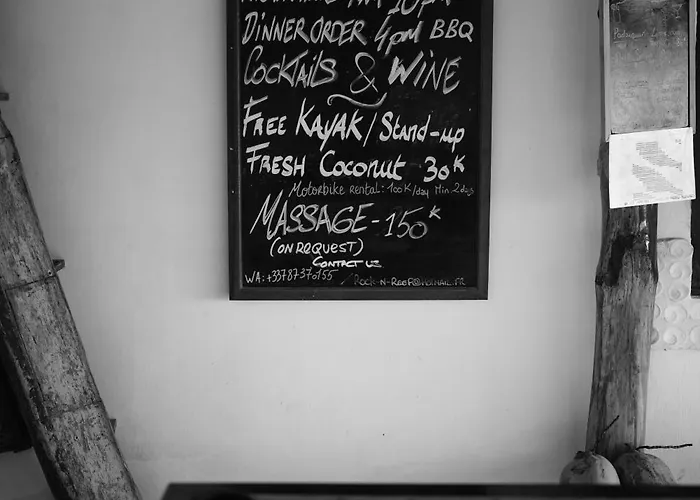 DINNER ORDER 4pm BBQ
COCKTAILS & WINE
FREE KAYAK / Stand-up
FRESH Coconut 30K
Motorbike rental: 100K/day Min. 2 days
MASSAGE - 150K
(ON REQUEST)
CONTACT US
WA: +33787370155 / ROCK-N-REEF@HOTMAIL.FR